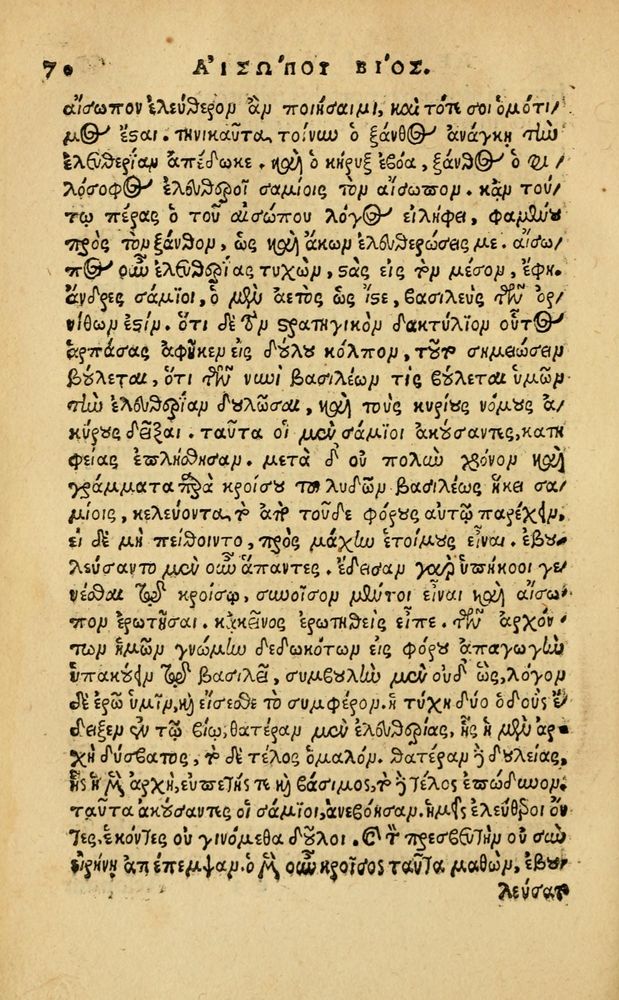 70 ΑἸΣΩ´ΠΟΥ ΒΙ´ΟΣ.
αἴσωπον ἐλεύθερον ἂν ποιήσαιμι, καὶ τότε σοι ὁμότι/
μος ἔσαι. τηνικαῦτα τοίνυν ὁ ξάνθος ἀνάγκῃ τὴν
ἐλευθερίαν ἀπέδωκε. καὶ ὁ κήρυξ ἐβόα, ξάνθος ὁ φι/
λόσοφος ἐλευθεροῖ σαμίοις τὸν αἴσωπον. κἀν τού/
τῳ πέρας ὁ τοῦ αἰσώπου λόγος εἴληφε, φαμένου
πρὸς τὸν ξάνθον, ὡς καὶ ἄκων ἐλευθερώσεις με. αἴσω/
πος οὖν ἐλευθερίας τυχὼν, στὰς εἰς τὸ μέσον, ἔφη.
ἄνδρες σάμιοι, ὁ μὲν ἀετὸς ὡς ἴστε, βασιλεὺς τῶν ὀρ/
νίθων ἐστίν. ὅτι δὲ τὸν στρατηγικὸν δακτύλιον οὗτος
ἁρπάσας ἀφῆκεν εἰς δούλου κόλπον, τοῦτο σημειῶσαι
βούλεται, ὅτι τῶν νυνὶ βασιλέων τὶς βούλεται ὑμῶν
τὴν ἐλευθερίαν δουλῶσαι, καὶ τοὺς κυρίους νόμους ἀ/
κύρους δεῖξαι. ταῦτα οἱ μὲν σάμιοι ἀκούσαντες, κατη
φείας ἐπλήσθησαν. μετὰ δ' οὐ πολὺν χρόνον καὶ
γράμματα παρὰ κροίσου τοῦ λυδῶν βασιλέως ἧκε σα/
μίοις, κελεύοντα, τὸ ἀπὸ τοῦδε φόρους αὐτῷ παρέχειν,
εἰ δὲ μὴ πείθοιντο, πρὸς μάχην ἑτοίμους εἶναι. ἐβου/
λεύσαντο μὲν οὖν ἅπαντες. ἔδεισαν γὰρ ὑπήκοοι γε/
νέσθαι τῷ κροίσῳ, συνοῖσον μέντοι εἶναι καὶ αἴσω/
πον ἐρωτῆσαι. κἀκεῖνος ἐρωτηθεὶς εἶπε. τῶν ἀρχόν/
των ἡμῶν γνώμην δεδωκότων εἰς φόρου ἀπαγωγὴν
ὑπακούειν τῷ βασιλεῖ, συμβουλὴν μὲν οὐδ' ὡς, λόγον
δὲ ἐρῶ ὑμῖν, καὶ εἴσεσθε τὸ συμφέρον. ἡ τύχη δύο ὁδοὺς ἔ/
δειξεν ἐν τῷ βίῳ, θατέραν μὲν ἐλευθερίας, ἧς ἡ μὲν ἀρ/
χὴ δύσβατος, τὸ δὲ τέλος ὁμαλόν. θατέραν δὲ δουλείας,
ἧς ἡ μὲν ἀρχὴ, εὐπετής τε καὶ βάσιμος, τὸ δὲ τέλος ἐπώδυνον.
ταῦτα ἀκούσαντες οἱ σάμιοι, ἀνεβόησαν. ἡμεῖς ἐλεύθεροι ὄν
τες, ἑκόντες οὐ γινόμεθα δοῦλοι. καὶ τὸν πρεσβευτὴν οὐ σὺν
εἰρήνῃ ἀπέπεμψαν. ὁ μὲν οὖν κροῖσος ταῦτα μαθὼν, ἐβου/
λεύσατ